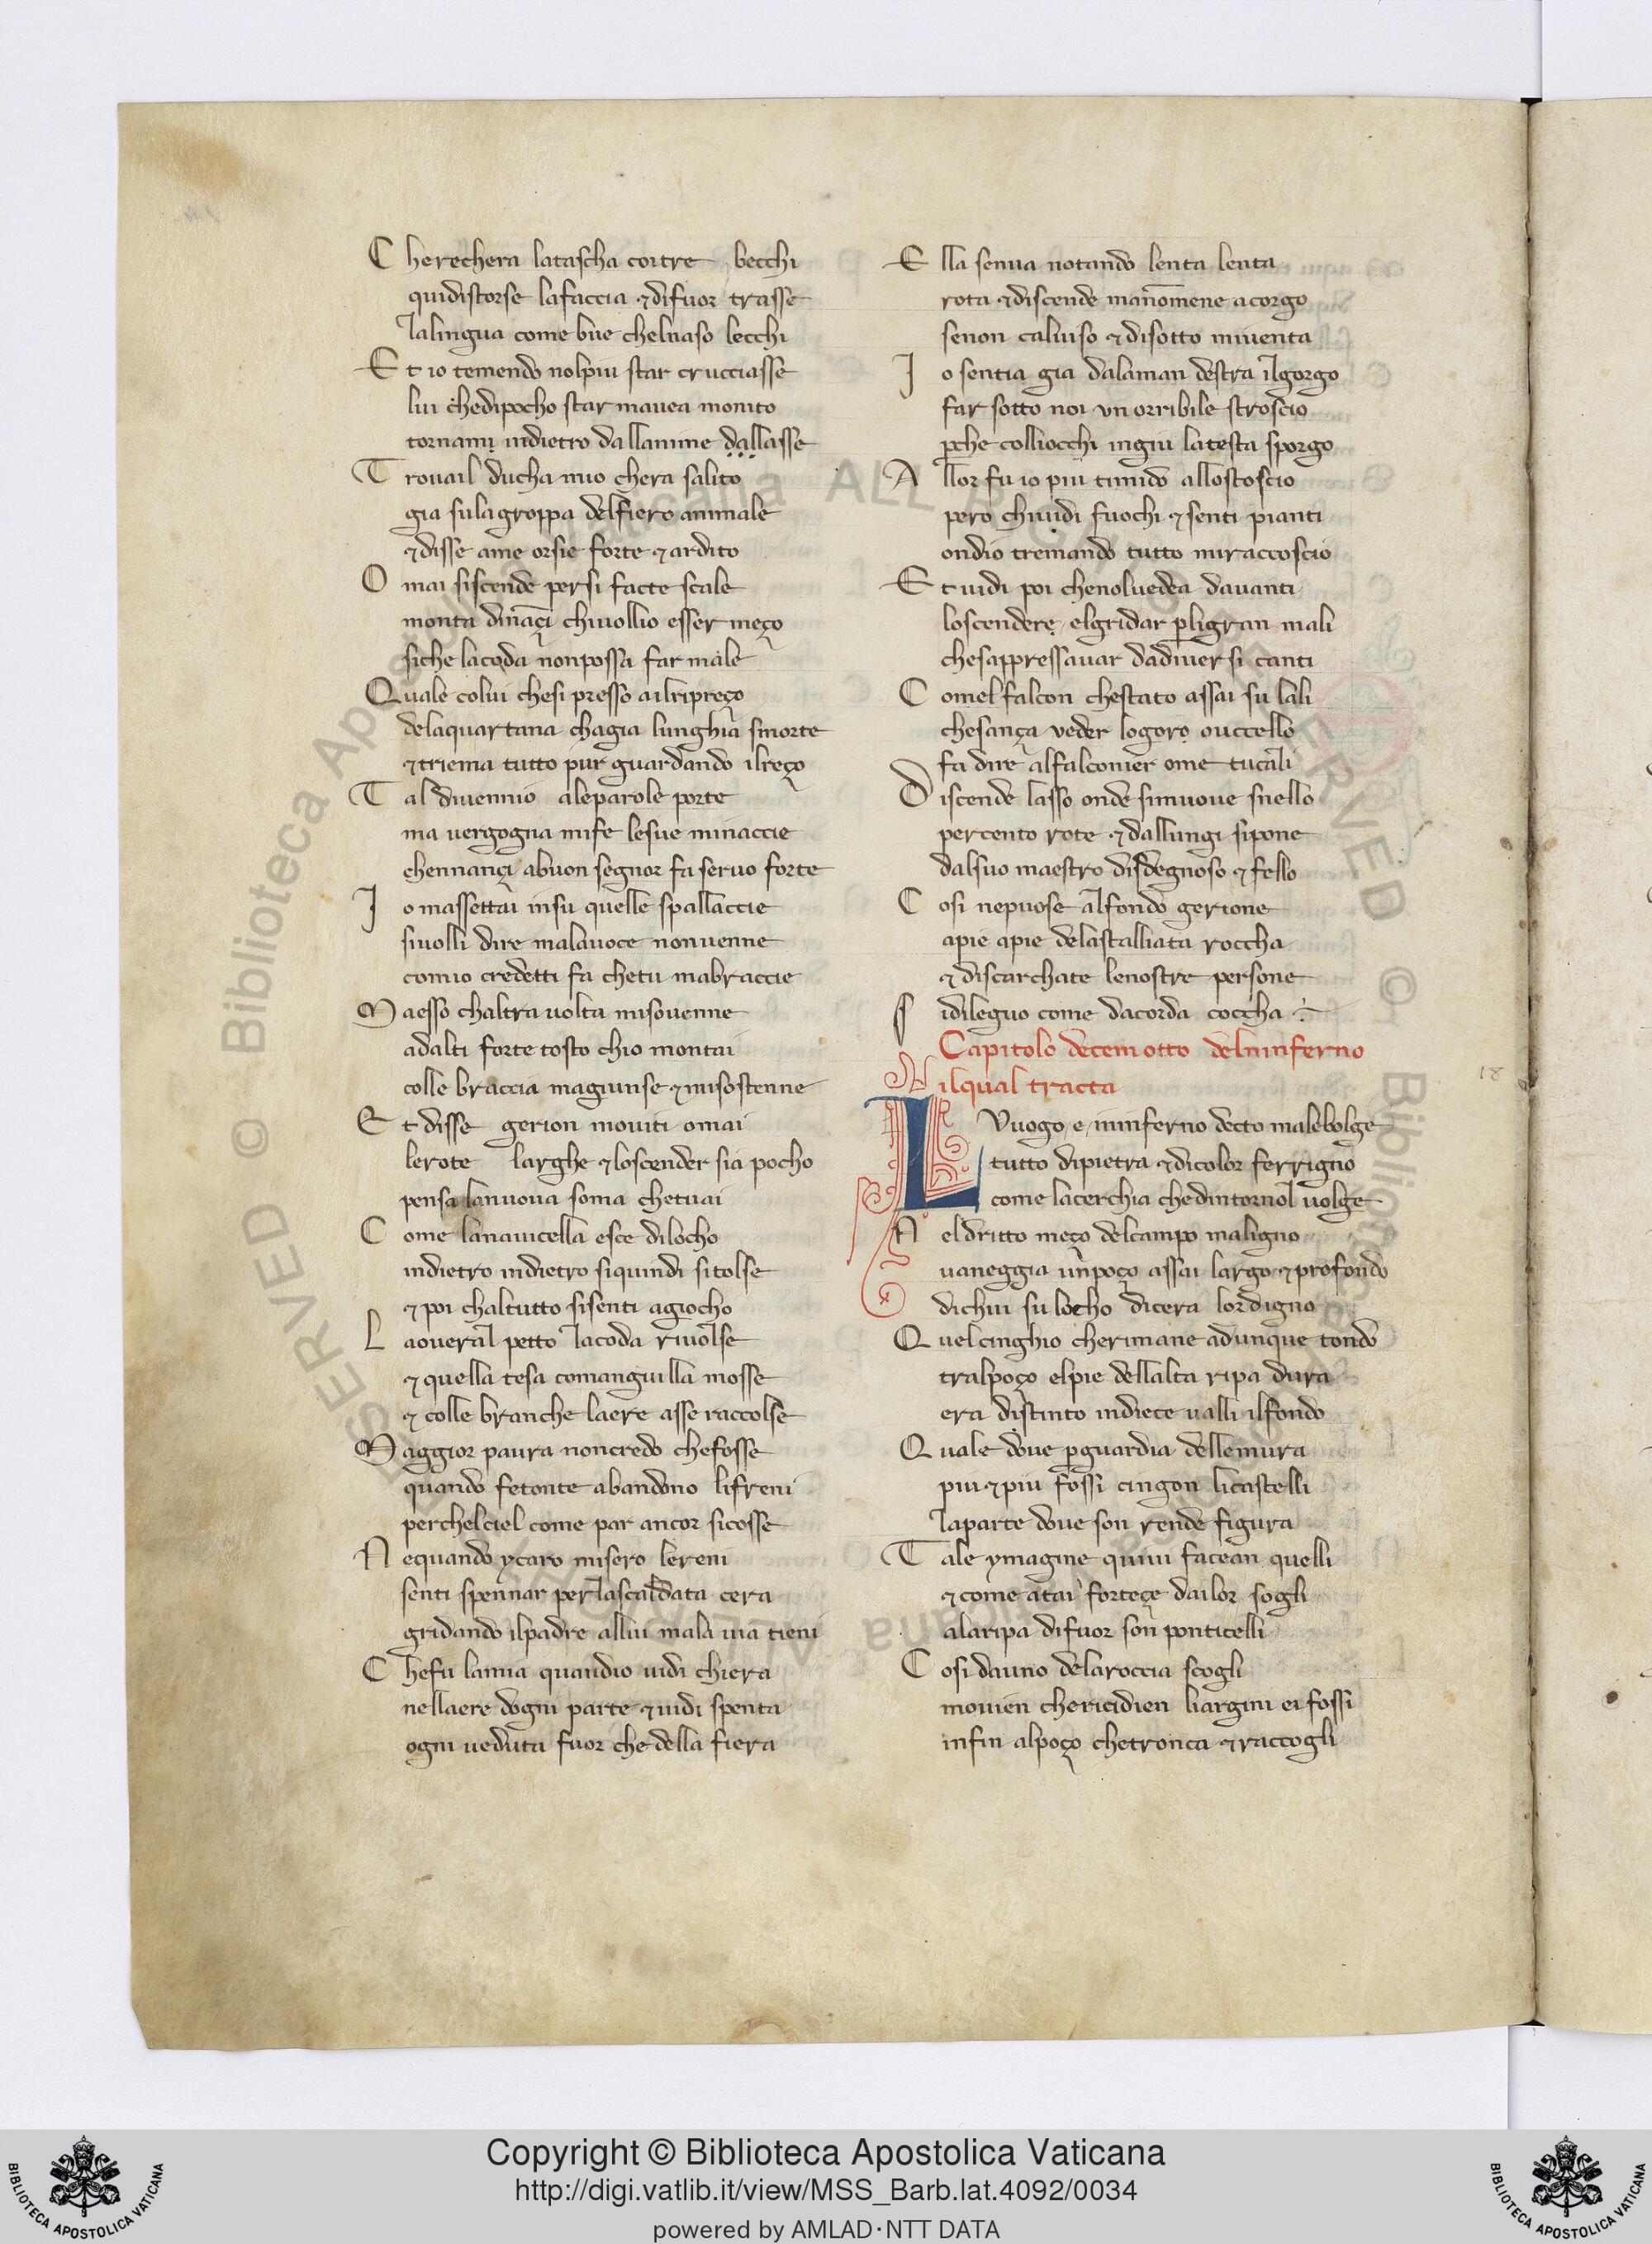 C herechera latascha coitre becchi
quidistorse lafaccia ⁊difuor trasse
lalingua come bue chelnaso lecchi
E t io temendo nolpiu star crucciasse
lui chedipocho star mauea monito
tornami indietro dallanime dallasse
T rouail ducha mio chera salito
gia sulagroppa delfiero animale
⁊disse ame orsie forte ⁊ ardito
O mai siscende persi facte scale
monta dināçi chiuollio esser meço
siche lacoda nonpossa far male
Quale colui chesi presso ailripreço
delaquartana chagia lunghia smorte
⁊triema tutto pur guardando ilreço
T al diuennio aleparole porte
ma uergogna mife lesue minaccie
chennançi abuon segnor fa seruo forte
I o massettai insu quelle spallaccie
siuolli dire malauoce nonuenne
comio credetti fa chetu mabraccie
M aesso chaltra uolta misouenne
adalti forte tosto chio montai
colle braccia magiunse ⁊misostenne
E t disse gerion mouiti omai
lerote larghe ⁊loscender sia pocho
pensa lanuoua soma chetuai
C ome lanauicella esce dilocho
indietro indietro siquindi sitolse
⁊ poi chaltutto sisenti agiocho
L aoueral petto lacoda riuolse
⁊ quella tesa comanguilla mosse
⁊ colle branche laere asse raccolse
M aggior paura noncredo chefosse
quando fetonte abandono lifreni
perchelciel come par ancor sicosse
N equando ycaro misero lereni
senti spennar perlascaldata cera
gridando ilpadre allui mala uia tieni
C hefu lamia quandio uidi chiera
nellaere dogni parte ⁊uidi spenta
ogni ueduta fuor che della fiera
E lla senua notando lenta lenta
rota ⁊discende manōmene acorgo
senon caluiso ⁊ disotto miuenta
I o sentia gia dalaman destra ilgorgo
far sotto noi vn orribile stroscio
pche colliocchi ingiu latesta sporgo
A llor fu io piu timido allostoscio
pero chiuidi fuochi ⁊ senti pianti
ondio tremando tutto miraccoscio
E t uidi poi chenoluedea dauanti
loscendere elgridar pligran mali
chesappressauar dadiuer si canti
C omelfalcon chestato assai su lali
chesança veder logoro ouccello
fa dire alfalconier ome tucali
D iscende lasso onde simuoue snello
percento rote ⁊dallungi sipone
dalsuo maestro disdegnoso ⁊ fello
C osi nepuose alfondo gerione
apie apie delastalliata roccha
⁊ discarchate lenostre persone
S idileguo come dacorda coccha
Capitolo decem otto delninferno
ilqual tracta
L Vuogo e ininferno decto malebolge
tutto dipietra ⁊dicolor ferrigno
come lacerchia chedintornol uolge
N eldritto meço delcampo maligno
uaneggia unpoço assai largo ⁊profondo
dichui su locho dicera lordigno
Q uelcinghio cherimane adunque tondo
tralpoço elpie dellalta ripa dura
era distinto indiece ualli ilfondo
Q uale doue pguardia dellemura
piu⁊piu fossi cingon licastelli
laparte doue son rende figura
T ale ymagine quiui facean quelli
⁊come atai forteçe dailor sogli
alaripa difuor son ponticelli
C osi dauno delaroccia scogli
mouien chericidien liargini ei fossi
infin alpoço chetronca ⁊raccogli
18
Copyright © Biblioteca Apostolica Vaticana
http://digi.vatlib.it/view/MSS_Barb.lat.4092/0034
powered by AMLAD·NTT DATA
BIBLIOTECA APOSTOLICA VATICANA
BIBLIOTECA APOSTOLICA VATICANA